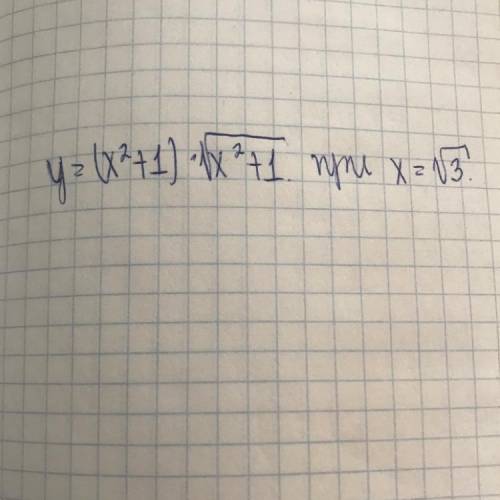 y = (x²+1) · √(x²+1). при x = √3.